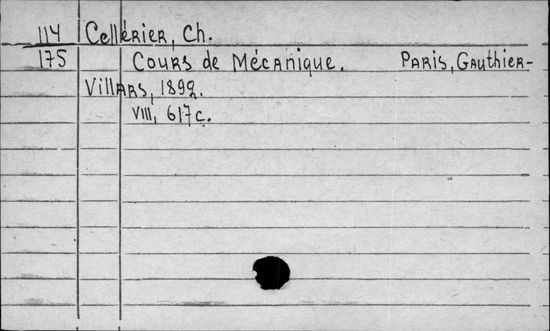 114 Cellérier, Ch.
175 Cours de Mécanique. Paris, Gauthier-
Villars, 1892.
VIII, 617c.